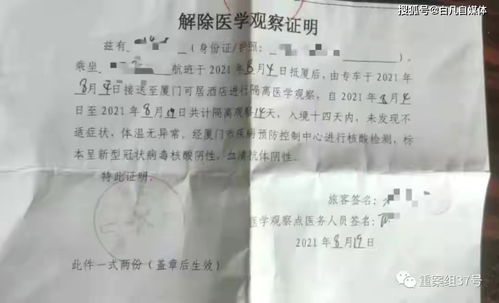 搜狐号@白凡自媒体
解除医学观察证明
兹有 (身份证/护照:
乘坐 航班于2021年8月4日抵厦后,由专车于2021年
8月4日接送至厦门可居酒店进行隔离医学观察,自2021年8月4
日至2021年8月19日共计隔离观察14天,入境十四天内,未发现不
适症状,体温无异常,经厦门市疾病预防控制中心进行核酸检测,标
本呈新型冠状病毒核酸阴性,血清抗体阴性。
特此证明.
旅客签名:
医学观察点医务人员签名:
2021年8月19日
此件一式两份(盖章后生效)
重案组37号